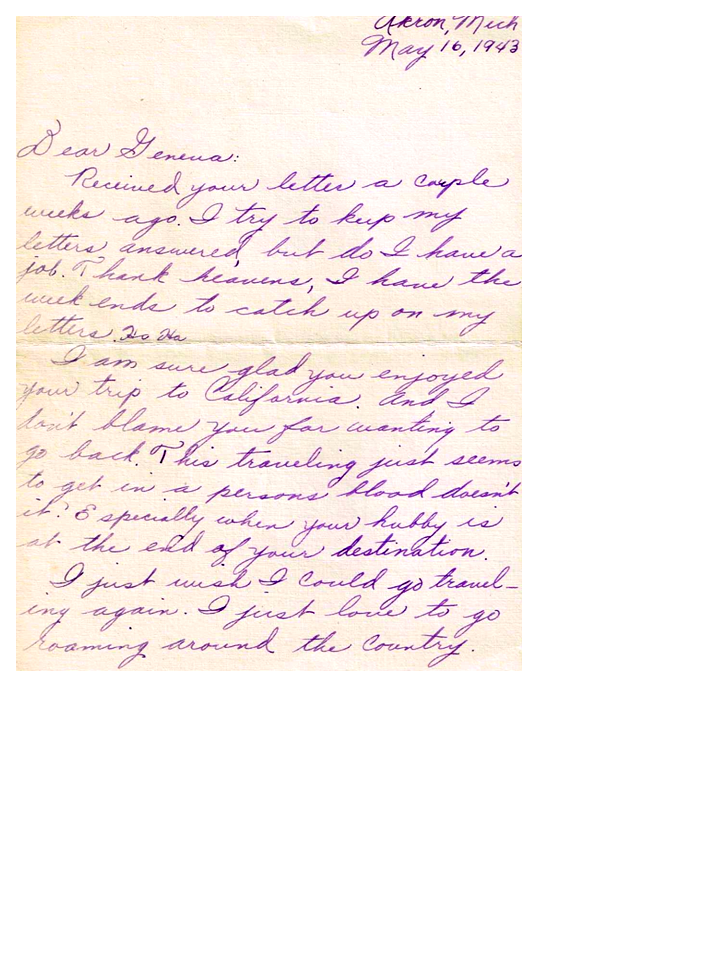 Akron, Mich
May 16, 1943
Dear Geneva:
Received your letter a couple
weeks ago. I try to keep my
letters answered, but do I have a
job. Thank heavens, I have the
week ends to catch up on my
letters. Ha Ha
I am sure glad you enjoyed
your trip to California. And I
don't blame you for wanting to
go back. This traveling just seems
to get in a persons blood doesn't
it? Especially when your hubby is
at the end of your destination.
I just wish I could go travel-
ing again. I just love to go
roaming around the country.